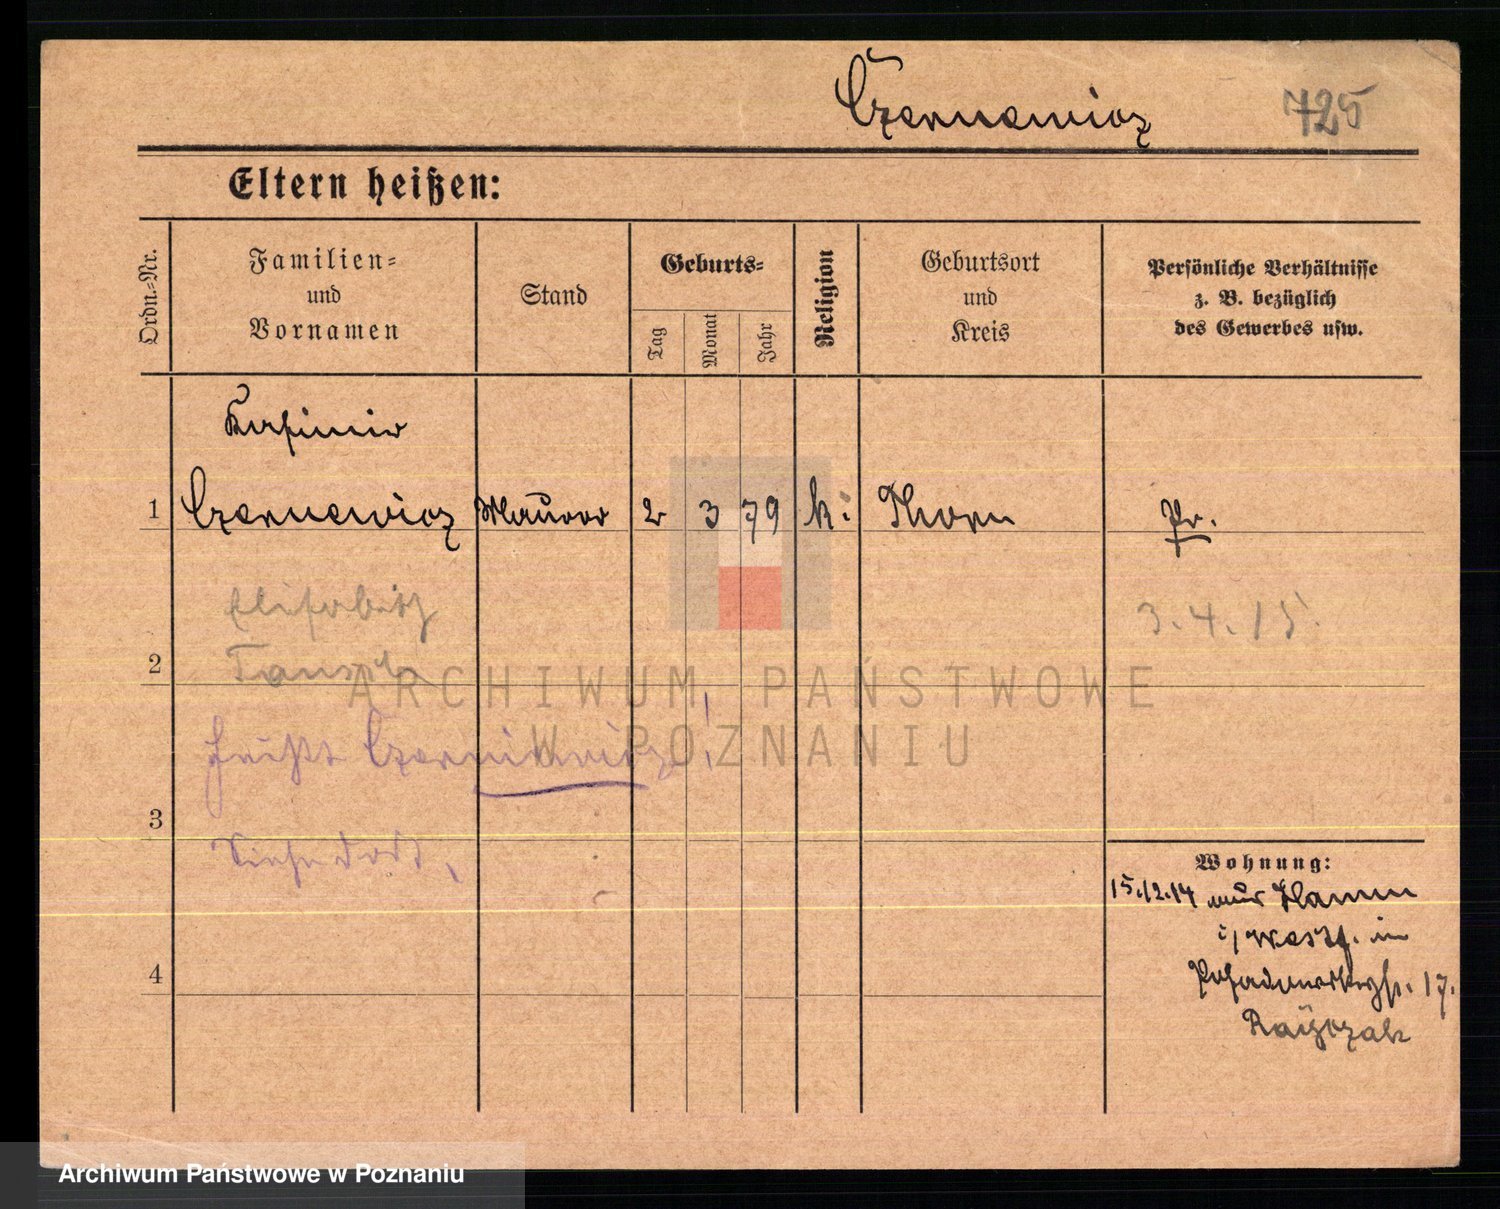 Czarnewicz 725
Eltern heißen:
Ordn.-Nr.
Familien-
und
Vornamen
Stand
Geburts-
Tag
Monat
Jahr
Religion
Geburtsort
und
Kreis
Persönliche Verhältnisse
z. B. bezüglich
des Gewerbes usw.
Kasimir
1 Czarnewicz Maurer 2 3 79 k: Thorn Pr.
Elisabeth
3.4.15.
2
heißt Czarnikwicz!
3
Siehe dort.
Wohnung:
15.12.14 aus Hamm
i/Westf. in
17.
4
ARCHIWUM PAŃSTWOWE
W POZNANIU
Archiwum Państwowe w Poznaniu